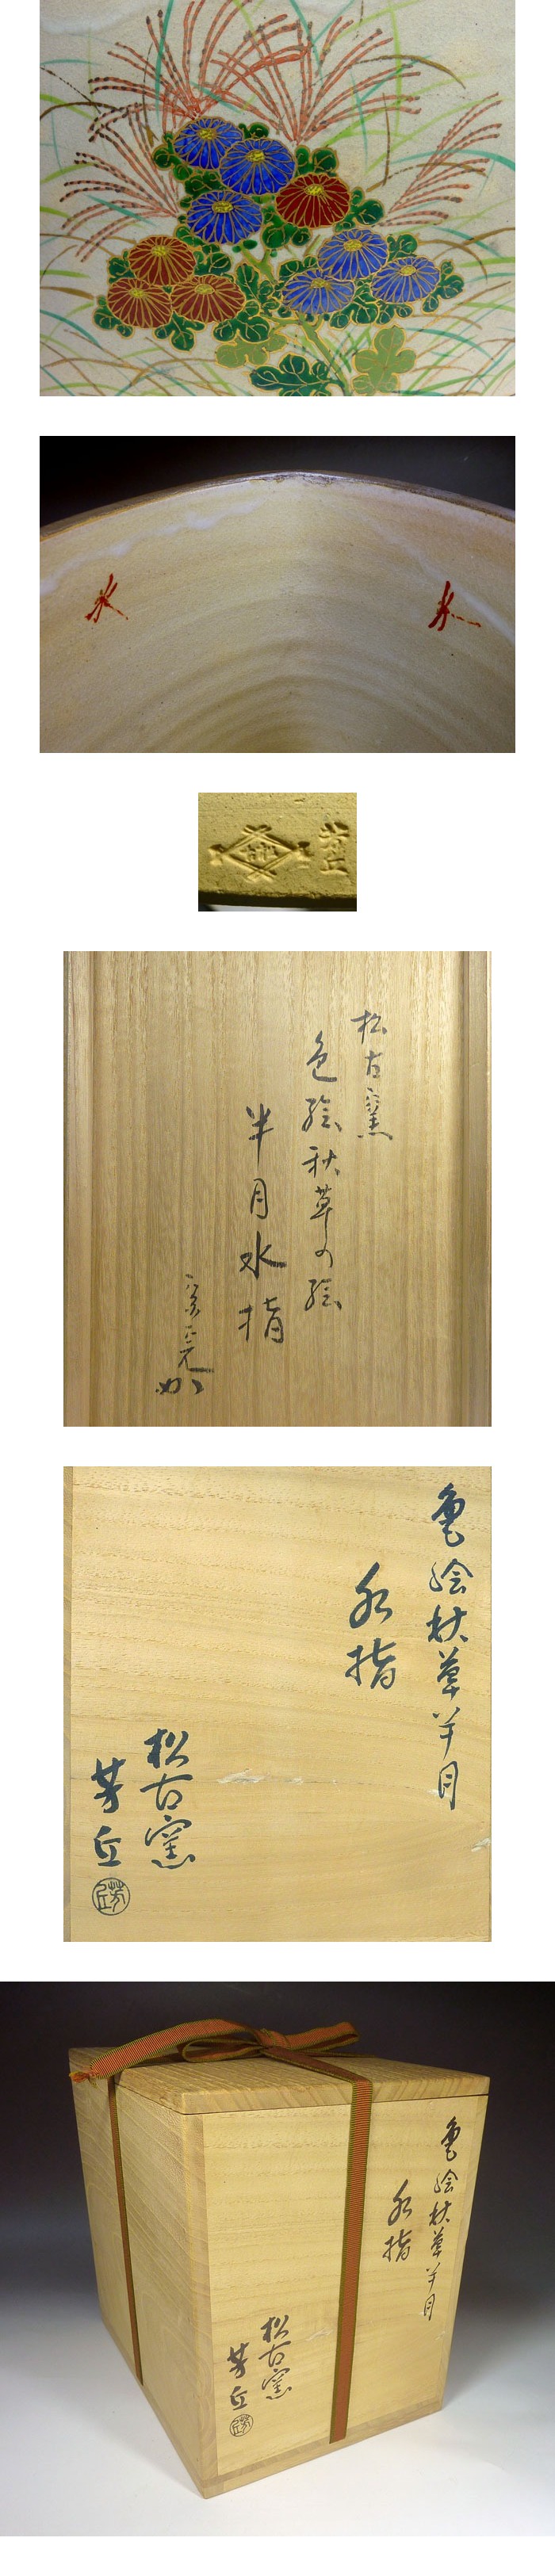 松古
芳丘
松古窯
色絵秋草の絵
半月水指
色絵秋草半月
水指
松古窯
芳丘
芳丘
色絵秋草半月
水指
松古窯
芳丘
芳丘